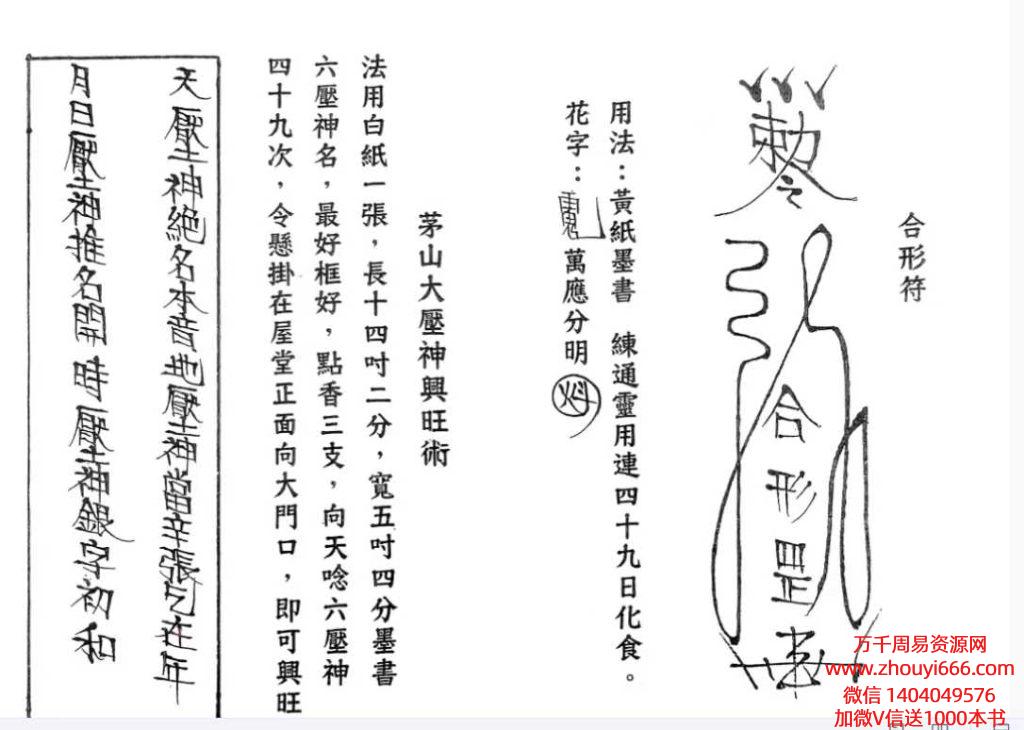 合形符
勅令
合形罡
用法：黃紙墨書　練通靈用連四十九日化食。
花字：　萬應分明
茅山大壓神興旺術
法用白紙一張，長十四吋二分，寬五吋四分墨書
六壓神名，最好框好，點香三支，向天唸六壓神
四十九次，令懸掛在屋堂正面向大門口，即可興旺
天壓神絕名本音地壓神當辛張乞在年
月日壓神推名開時壓神銀字初和
万千周易资源网
www.zhouyi666.com
微信 1404049576
加微V信送1000本书